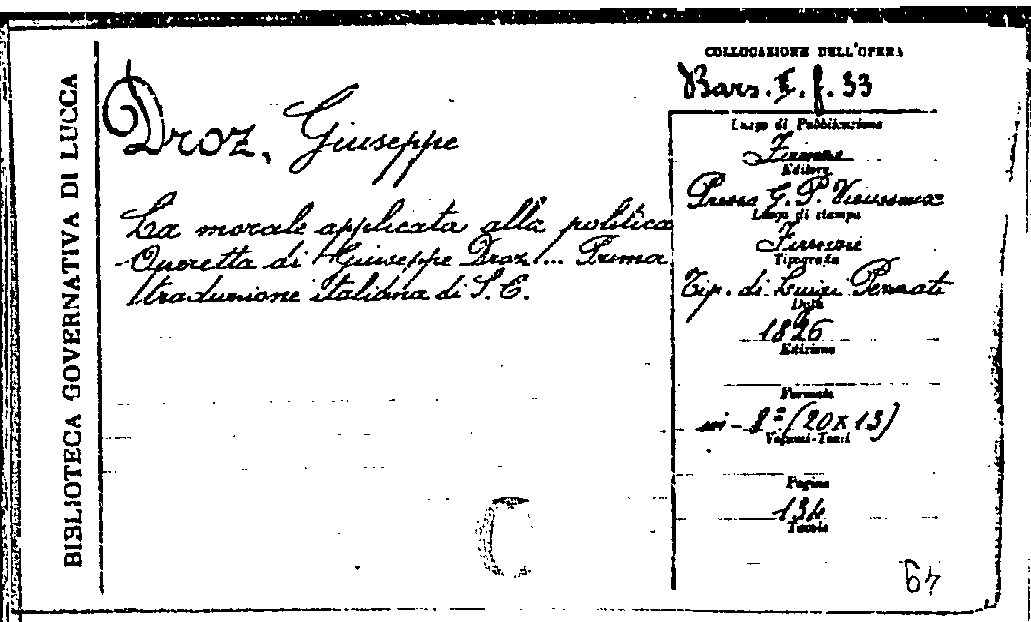 BIBLIOTECA GOVERNATIVA DI LUCCA
Droz, Giuseppe
La morale applicata alla politica
Operetta di Giuseppe Droz... Prima
traduzione italiana di S. E.
COLLOCAZIONE DELL'OPERA
Bars. II. f. 33
Luogo di Pubblicazione
Firenze
Editore
Presso G. P. Vieusseux
Luogo di stampa
Firenze
Tipografia
Tip. di Luigi Pezzati
Data
1826
Edizione
Formato
in-8º (20x13)
Volumi-Tomi
Pagine
134
Tavole